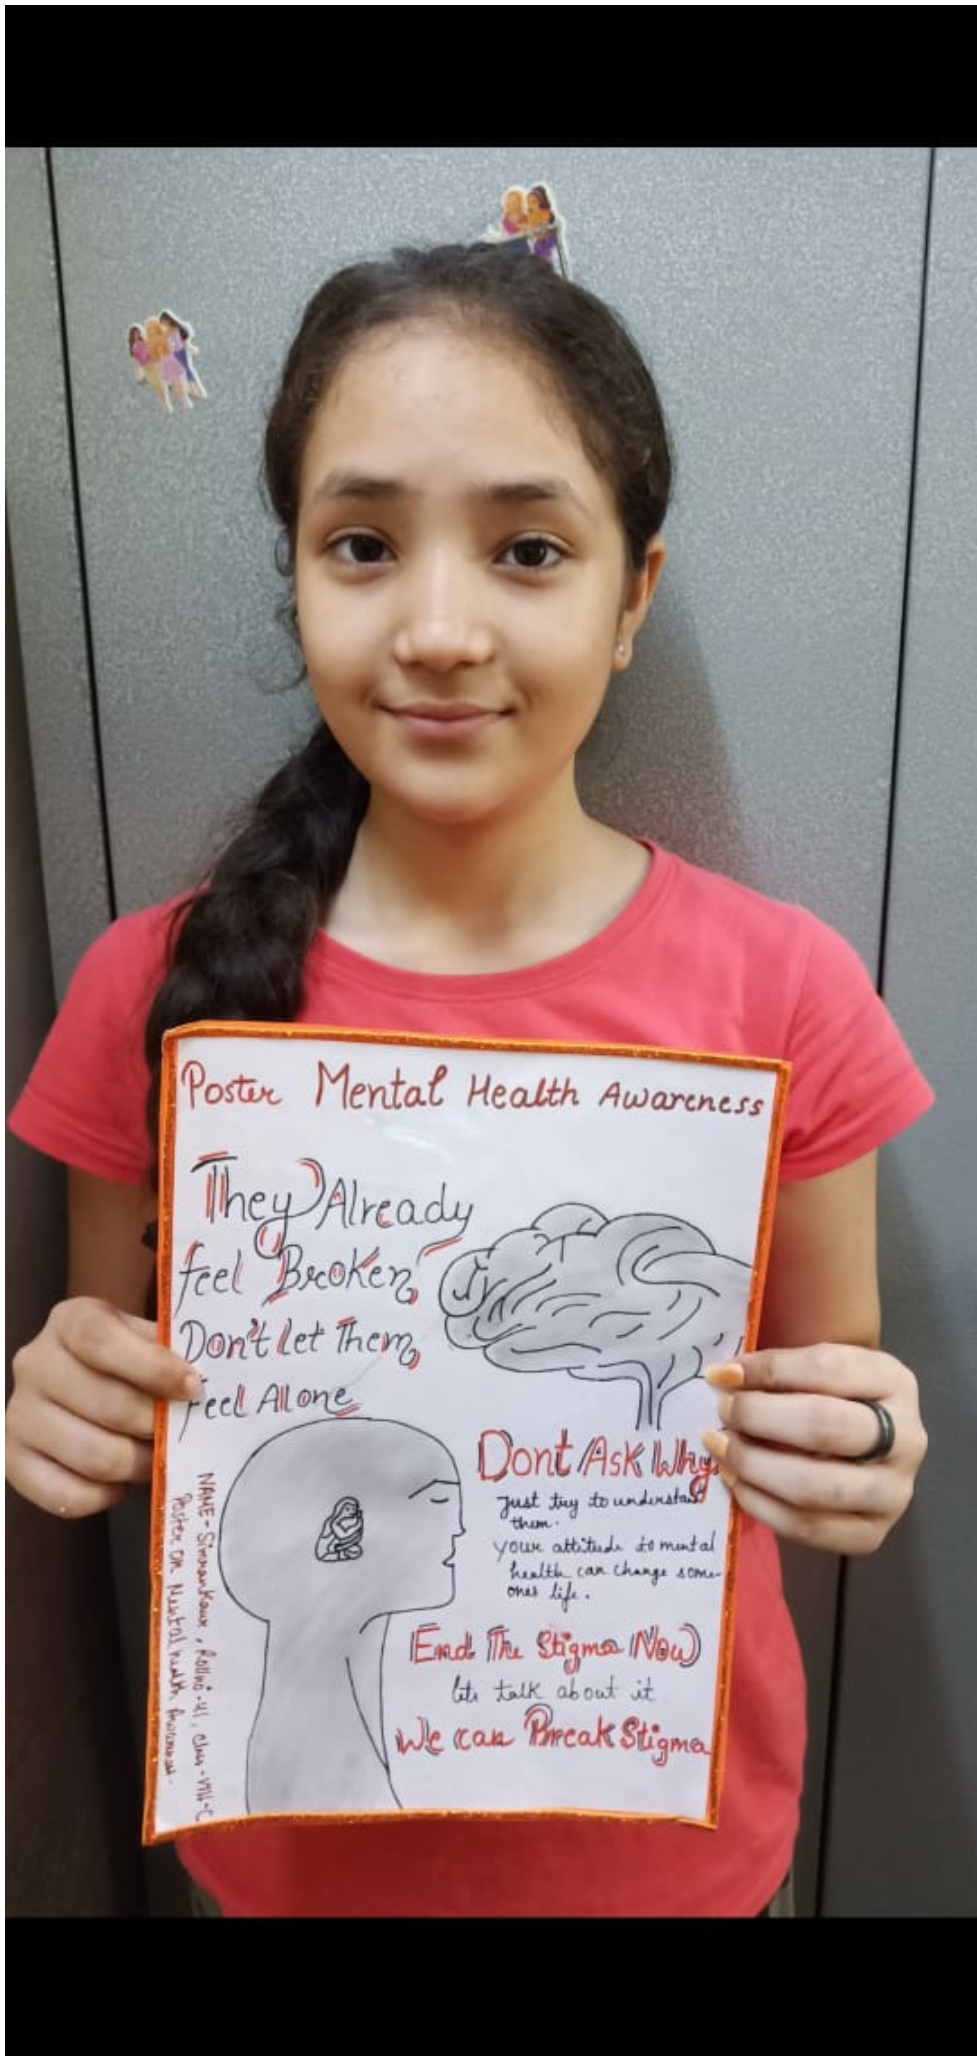 Poster Mental Health Awareness
They Already
feel Broken
Don't let Them
feel Alone
Dont Ask Why
just try to understand
them.
your attitude to mental
health can change some-
ones life.
End The Stigma Now
lets talk about it
We can Break Stigma
NAME - Simrankaur, Rollno-41, class-VIII-C
Poster on Mental health Awareness.